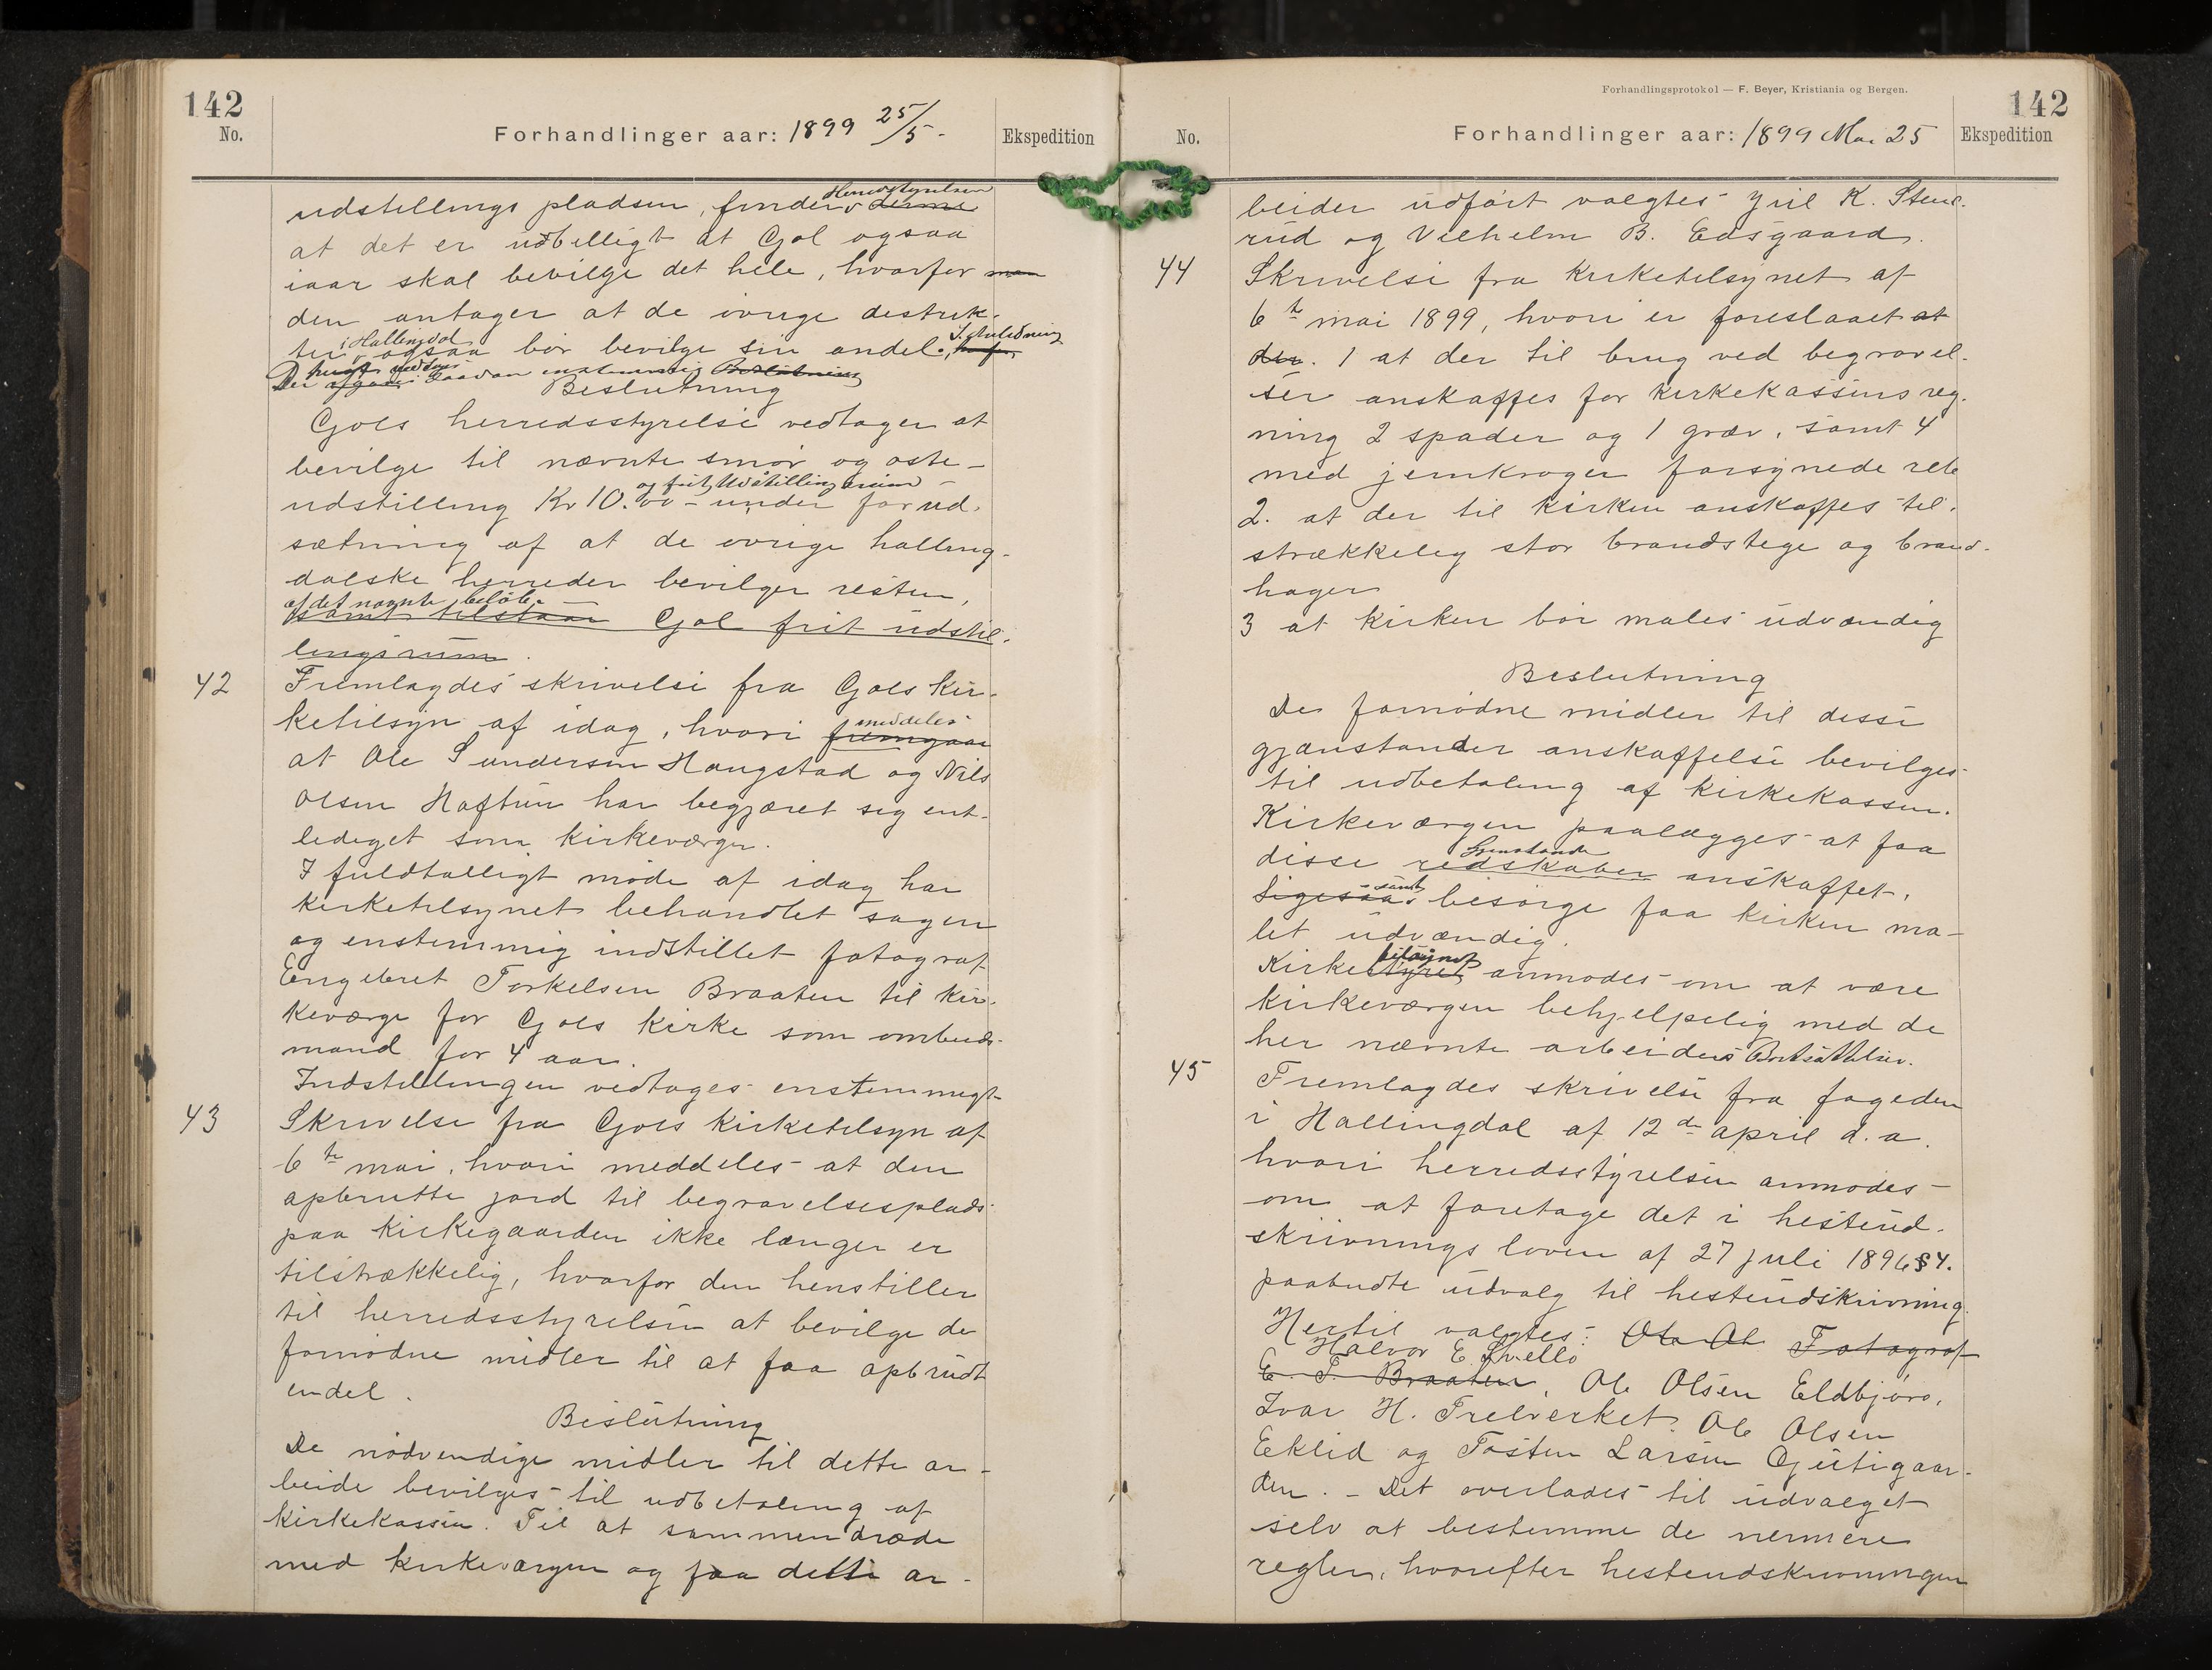 142
No.
Forhandlinger aar: 1899 25/5 -
Ekspedition
Herredstyrelsen
udstillings pladsen, finder denne
at det er ubilligt at Gol ogsaa
iaar skal bevilge det hele, hvorfor man
den antager at de øvrige distrik-
i Hallingdal
ter ogsaa bør bevilge sin andel. I Anledning
Der saadan
Beslutning
Gols herredsstyrelse vedtager at
bevilge til nævnte smør og oste-
og frit Udstillingsrum
udstilling Kr 10.00 - under forud-
sætning af at de øvrige halling-
dalske herreder bevilger resten,
af det nævnte beløb.
samt tilstaar Gol frit udstil-
lingsrum.
42
Fremlagdes skrivelse fra Gols kir-
meddeles
ketilsyn af idag, hvori fremgaar
at Ole Sandersen Haugstad og Nils
Olsen Haftun har begjæret sig ent-
lediget som kirkeværger.
I fuldtalligt møde af idag har
kirketilsynet behandlet sagen
og enstemmig indstillet fotograf
Engebret Torkelsen Braaten til kir-
keværge for Gols kirke som ombuds-
mand for 4 aar.
Indstillingen vedtages enstemmigt
43
Skrivelse fra Gols kirketilsyn af
6te mai, hvori meddeles at den
opbrutte jord til begravelsesplads
paa kirkegaarden ikke længer er
tilstrækkelig, hvorfor den henstiller
til herredsstyrelsen at bevilge de
fornødne midler til at faa opbrudt
endel.
Beslutning
De nødvendige midler til dette ar-
beide bevilges til udbetaling af
kirkekassen. Til at sammentræde
med kirkeværgen og faa dette ar-
Forhandlingsprotokol — F. Beyer, Kristiania og Bergen.
142
No.
Forhandlinger aar: 1899 Mai 25
Ekspedition
beider udført valgtes Jul K. Stens-
rud og Vilhelm B. Eidsgaard.
44
Skrivelse fra Kirketilsynet af
6te mai 1899, hvori er foreslaaet at
der. 1 at der til brug ved begravel-
ser anskaffes for kirkekassens reg-
ning 2 spader og 1 græv, samt 4
med jernkroger forsynede reb
2. at der til kirken anskaffes til-
strækkelig stor brandstege og brand-
hager
3 at kirken bør males udvændig
Beslutning
De fornødne midler til disse
gjenstander anskaffelse bevilges
til udbetaling af kirkekassen.
Kirkeværgen paalægges at faa
Gjenstande
disse redskaber anskaffet,
samt
Ligesaa besørge faa kirken ma-
let udvændig.
tilsynet
Kirkestyret anmodes om at være
kirkeværgen behjelpelig med de
her nævnte arbeiders Bortsættelse.
45
Fremlagdes skrivelse fra fogeden
i Hallingdal af 12de april d.a.
hvori herredsstyrelsen anmodes
om at foretage det i hesteud-
skrivnings loven af 27 juli 1896 § 4.
paabudte udvalg til hesteudskrivning.
Hertil valgtes: Ole Ol. Fotograf
Halvor E.
E. T. Braaten, Ole Olsen Eldbjørg,
Ivar H. Trelverket, Ole Olsen
Eklid og Tosten Larsen Gjutigaar-
den. - Det overlades til udvalget
selv at bestemme de nermere
regler, hvorefter hesteudskrivningen